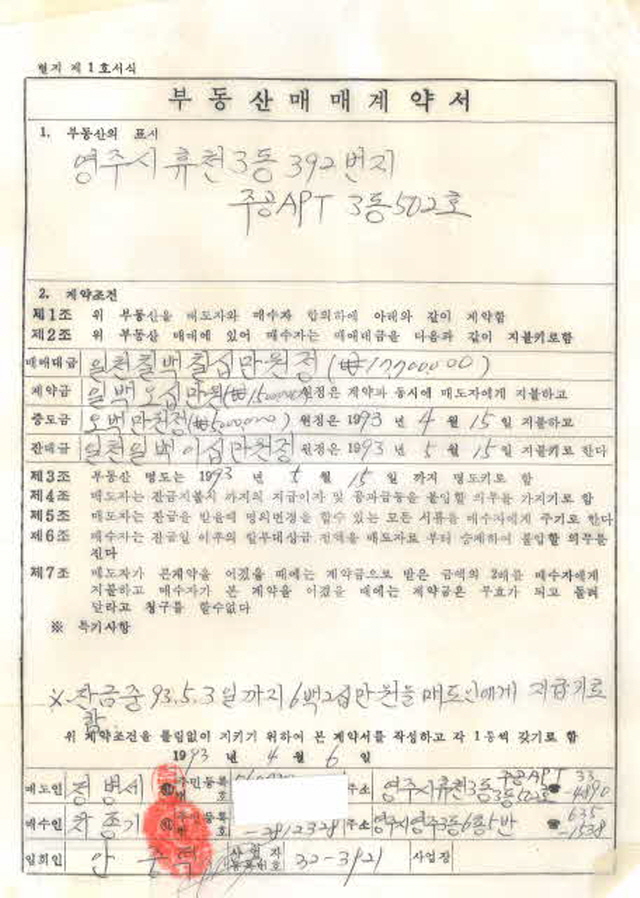 별지 제1호서식
부동산매매계약서
1. 부동산의 표시
영주시 휴천3동 392번지
주공APT 3동502호
2. 계약조건
제1조 위 부동산을 매도자와 매수자 합의하에 아래와 같이 계약함
제2조 위 부동산 매매에 있어 매수자는 매매대금을 다음과 같이 지불키로함
매매대금 일천칠백칠십만원정(₩17700000)
계약금 일백오십만원(₩1500000)원정은 계약과 동시에 매도자에게 지불하고
중도금 오백만원정(₩5000000) 원정은 1993년 4월 15일 지불하고
잔대금 일천일백이십만원정 원정은 1993년 5월 15일 지불키로 한다
제3조 부동산 명도는 1993년 5월 15일 까지 명도키로 함
제4조 매도자는 잔금지불시 까지의 지급이자 및 공과금등을 불입할 의무를 가지기로 함
제5조 매도자는 잔금을 받을때 명의변경을 할수 있는 모든 서류를 매수자에게 주기로 한다
제6조 매수자는 잔금일 이후의 일부대상금 전액을 매도자로 부터 승계하여 불입할 의무를
진다
제7조 매도자가 본계약을 어겼을 때에는 계약금으로 받은 금액의 2배를 매수자에게
지불하고 매수자가 본 계약을 어겼을 때에는 계약금은 무효가 되고 돌려
달라고 청구를 할수없다
※ 특기사항
※ 잔금중 93.5.3일까지 6백2십만원을 매도인에게 지급키로
함.
위 계약조건을 틀림없이 지키기 위하여 본 계약서를 작성하고 각 1통씩 갖기로 함
1993년 4월 6일
매도인 정병세 주민등록번호 주소 영주시휴천3동 주공APT 3동502호 ☎ 33-4890
매수인 차종기 주민등록번호 -2812328 주소 영주시영주3동6통5반 ☎ 635-1538
입회인 안 사업자등록번호 32-3921 사업장